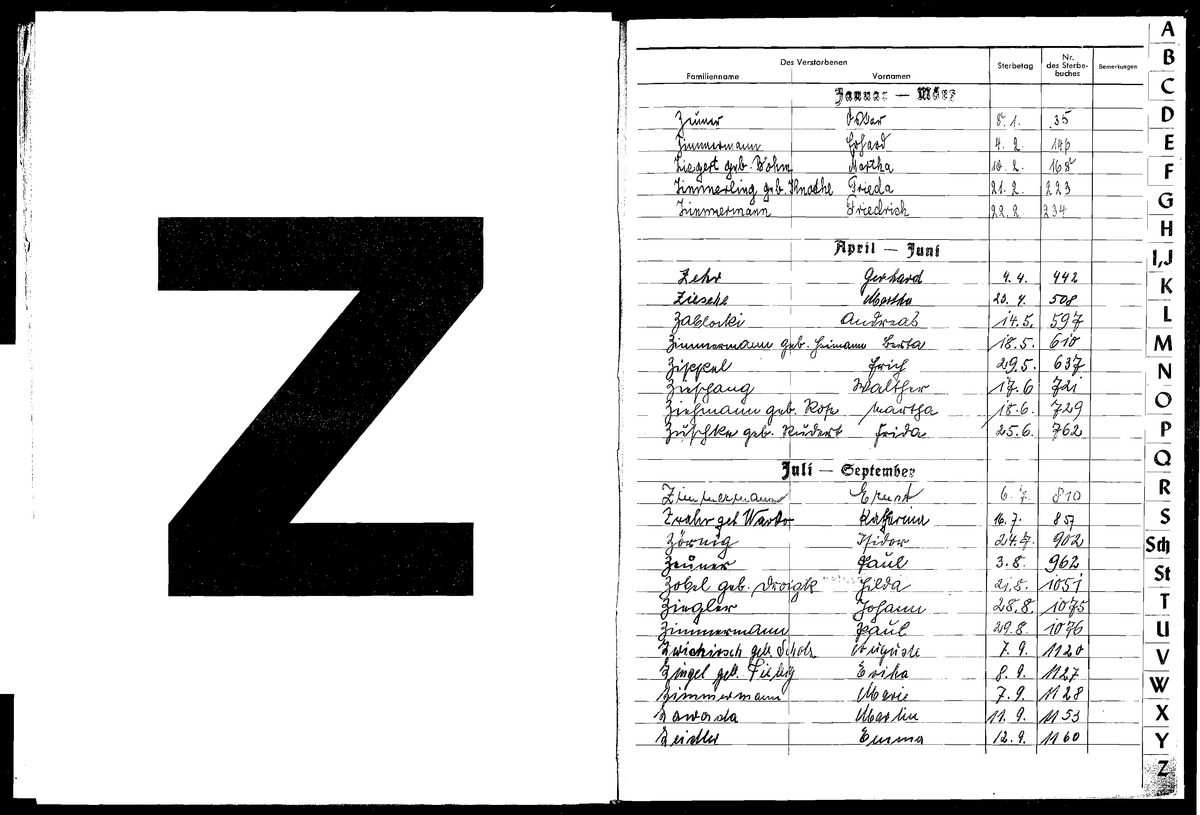 Z
Des Verstorbenen
Familienname Vornamen Sterbetag Nr. des Sterbebuches Bemerkungen
Januar — März
Zeuner 8. 1. 35
Zimmermann Erhard 4. 2. 146
Ziegert geb. Böhm Martha 10. 2. 168
Zimmerling geb. Knothe Frieda 21. 2. 223
Zimmermann Friedrich 22. 2. 234
April — Juni
Zehr Gerhard 4. 4. 442
Ziesche Martha 23. 4. 508
Zablocki Andreas 14. 5. 597
Zimmermann geb. Heimann Berta 18. 5. 610
Zippel Erich 29. 5. 637
Zieschang Walther 17. 6 721
Ziehmann geb. Rose Martha 18. 6. 729
Zuschke geb. Rudert Frida 25. 6. 762
Juli — September
Zimmermann Ernst 6. 7. 810
geb Katharina 16. 7. 857
Zörnig Isidor 24. 7. 902
Zeuner Paul 3. 8. 962
Zobel geb. Hilda 21. 8. 1051
Ziegler Johann 28. 8. 1075
Zimmermann Paul 29. 8. 1076
Zwickirsch geb. Scholz Auguste 7. 9. 1120
Zingel geb. Erika 8. 9. 1127
Zimmermann Marie 7. 9. 1128
Zawada Martin 11. 9. 1153
Zeidler Emma 12. 9. 1160
A
B
C
D
E
F
G
H
I,J
K
L
M
N
O
P
Q
R
S
Sch
St
T
U
V
W
X
Y
Z